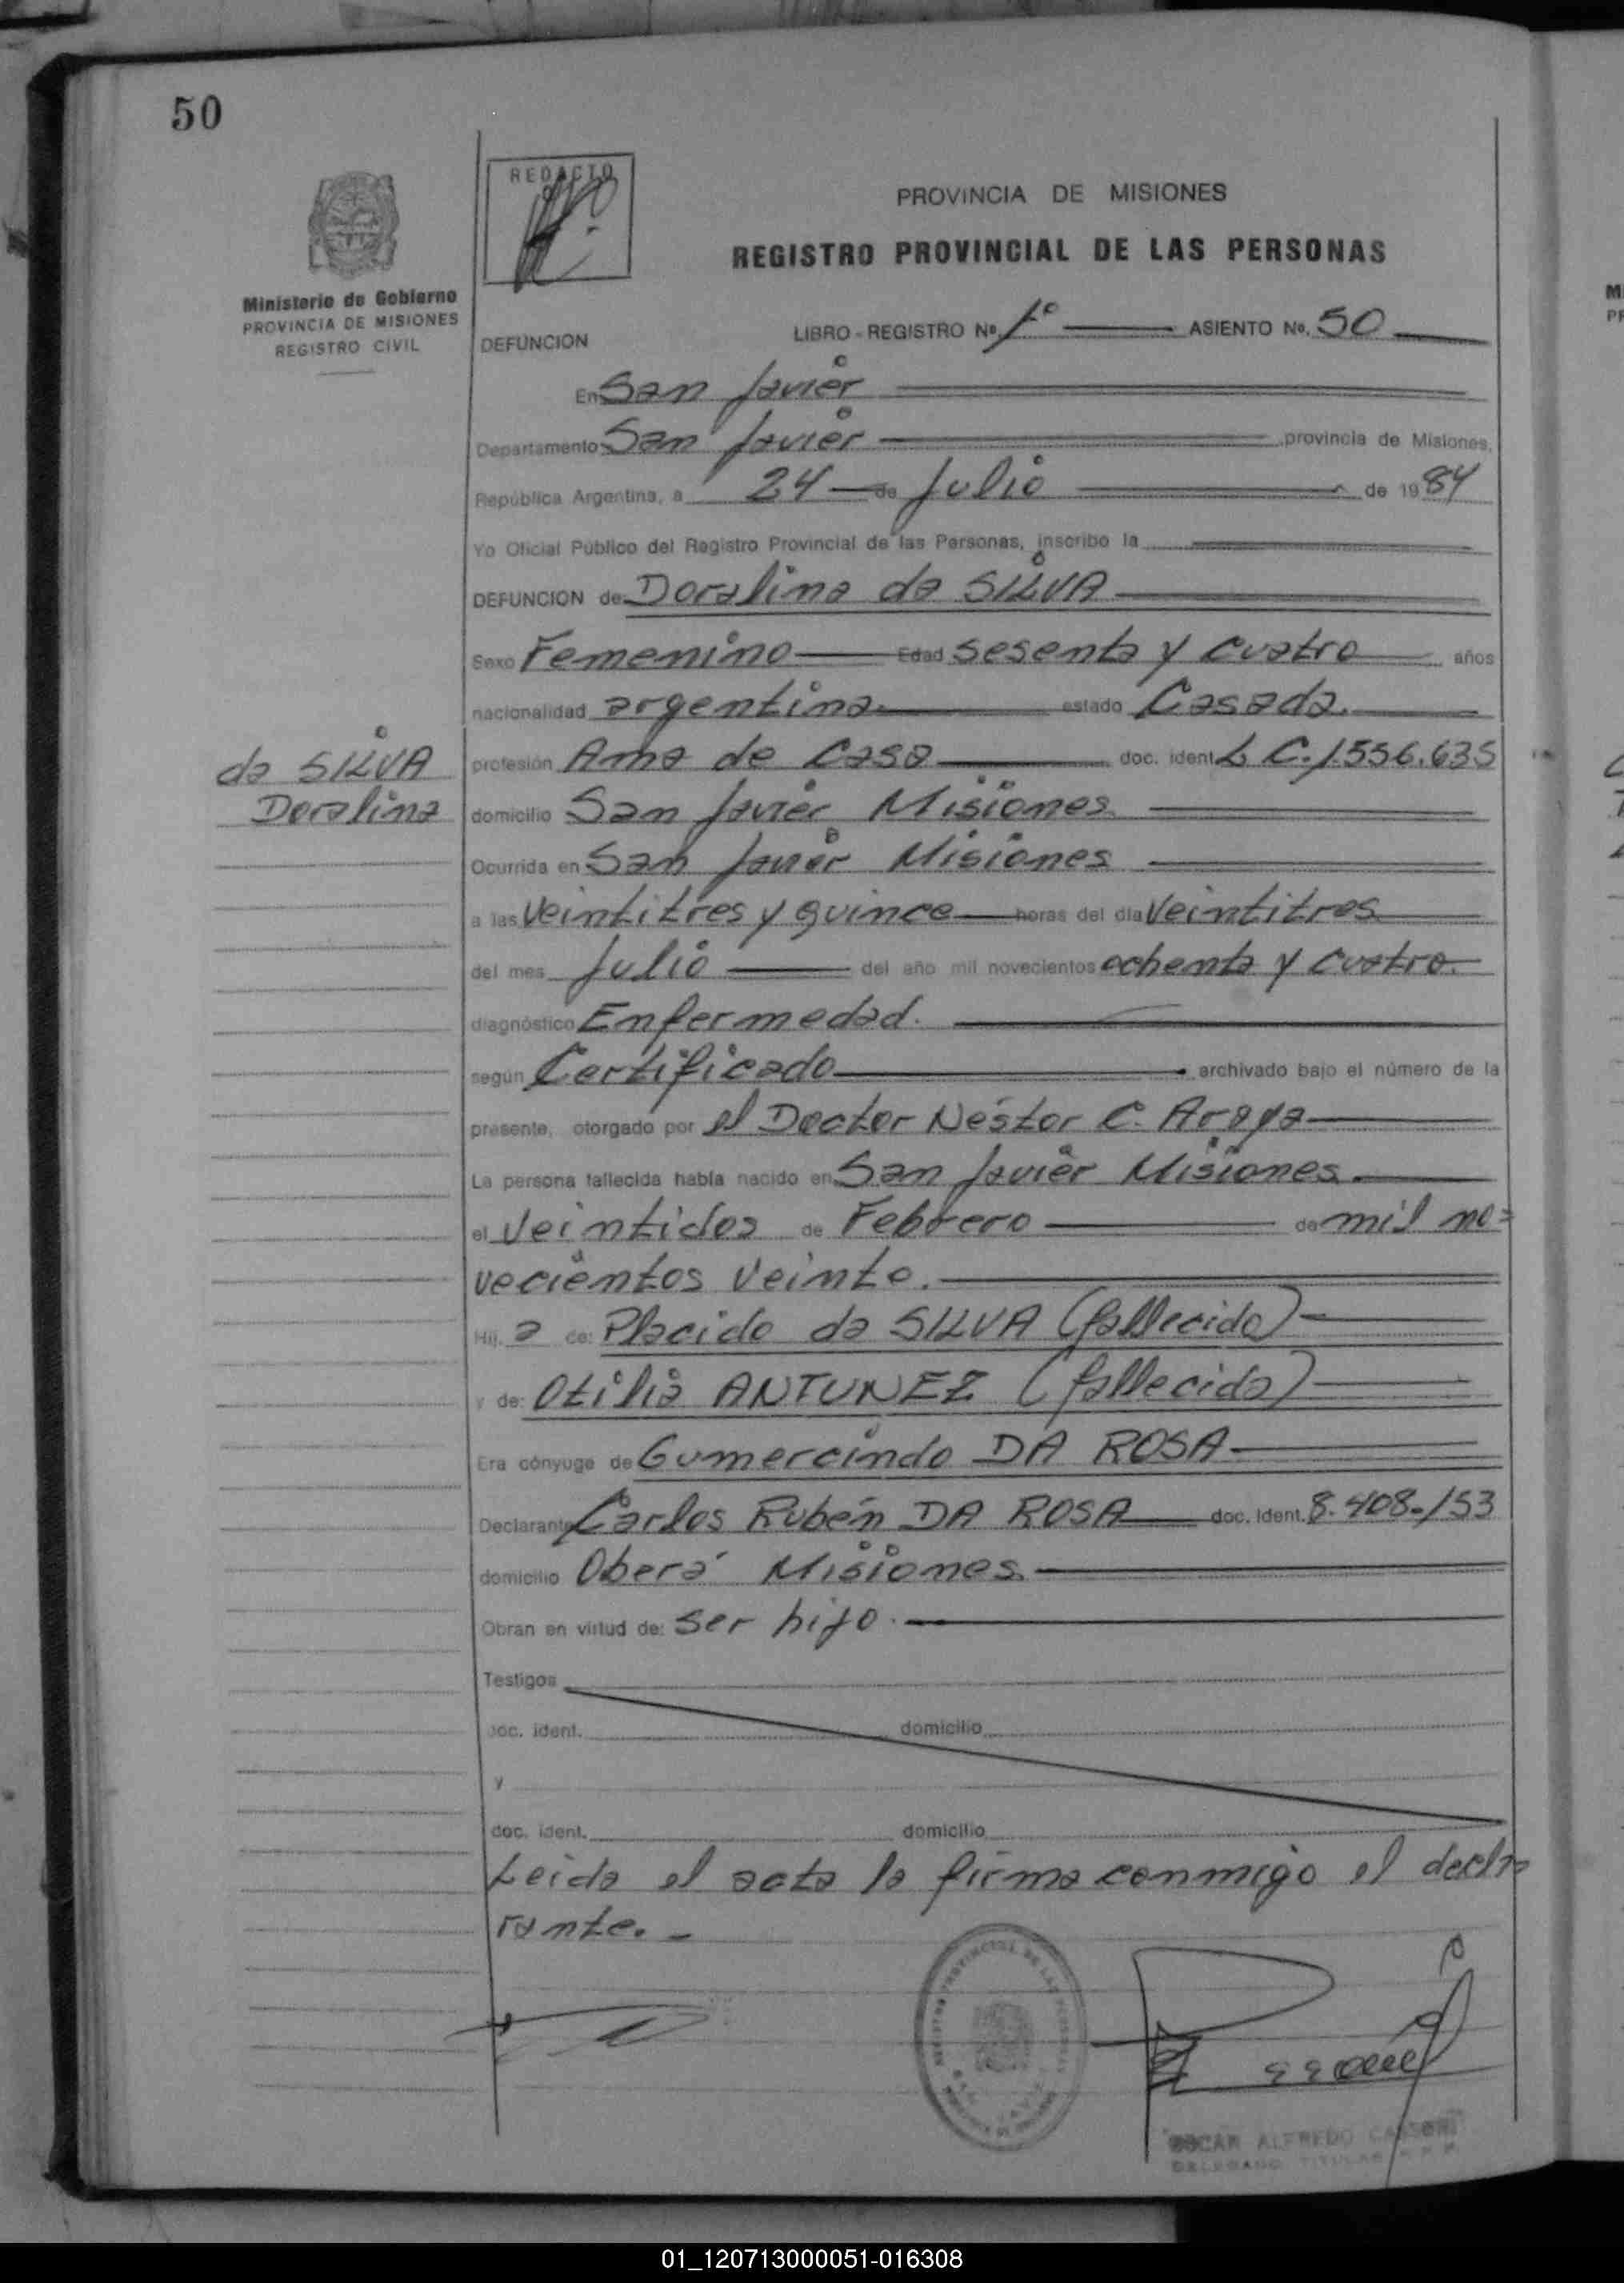 50
REDACTO
PROVINCIA DE MISIONES
REGISTRO PROVINCIAL DE LAS PERSONAS
Ministerio de Gobierno
PROVINCIA DE MISIONES
REGISTRO CIVIL
DEFUNCION
LIBRO - REGISTRO Nº. 1º ASIENTO No. 50
En San Javier
Departamento San Javier provincia de Misiones,
República Argentina, a 24 de Julio de 1984
Yo Oficial Público del Registro Provincial de las Personas, inscribo la
DEFUNCION de Doralina da SILVA
Sexo Femenino Edad sesenta y cuatro años
nacionalidad argentina estado Casada.
da SILVA
Doralina
profesión Ama de Casa doc. ident. L C. 1.556.635
domicilio San Javier Misiones
Ocurrida en San Javier Misiones
a las Veintitres y quince horas del día Veintitres
del mes Julio del año mil novecientos ochenta y cuatro.
diagnóstico Enfermedad.
según Certificado archivado bajo el número de la
presente, otorgado por el Doctor Néstor C. Araya
La persona fallecida había nacido en San Javier Misiones
el Veintidos de Febrero de mil no=
vecientos Veinte.
Hij. a de: Placido da SILVA (fallecido)
y de: Otilia ANTUNEZ (fallecida)
Era cónyuge de Gumercindo DA ROSA
Declarante Carlos Rubén DA ROSA doc. ident. 8.408.153
domicilio Oberá Misiones.
Obran en virtud de: ser hijo.
Testigos
doc. ident. domicilio
y
doc. ident. domicilio
Leida el acta la firma conmigo el decla
rante. -
OSCAR ALFREDO
DELEGADO TITULAR
01_120713000051-016308